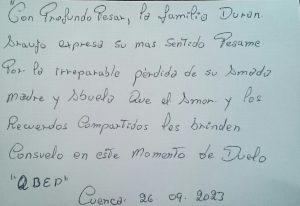 "Con Profundo Pesar, la familia Duran
Araujo expresa su mas Sentido Pesame
Por la irreparable pérdida de su Amada
madre y Abuela Que el Amor y los
Recuerdos Compartidos les brinden
Consuelo en este Momento de Duelo
"QBED"
Cuenca: 26 09. 2023